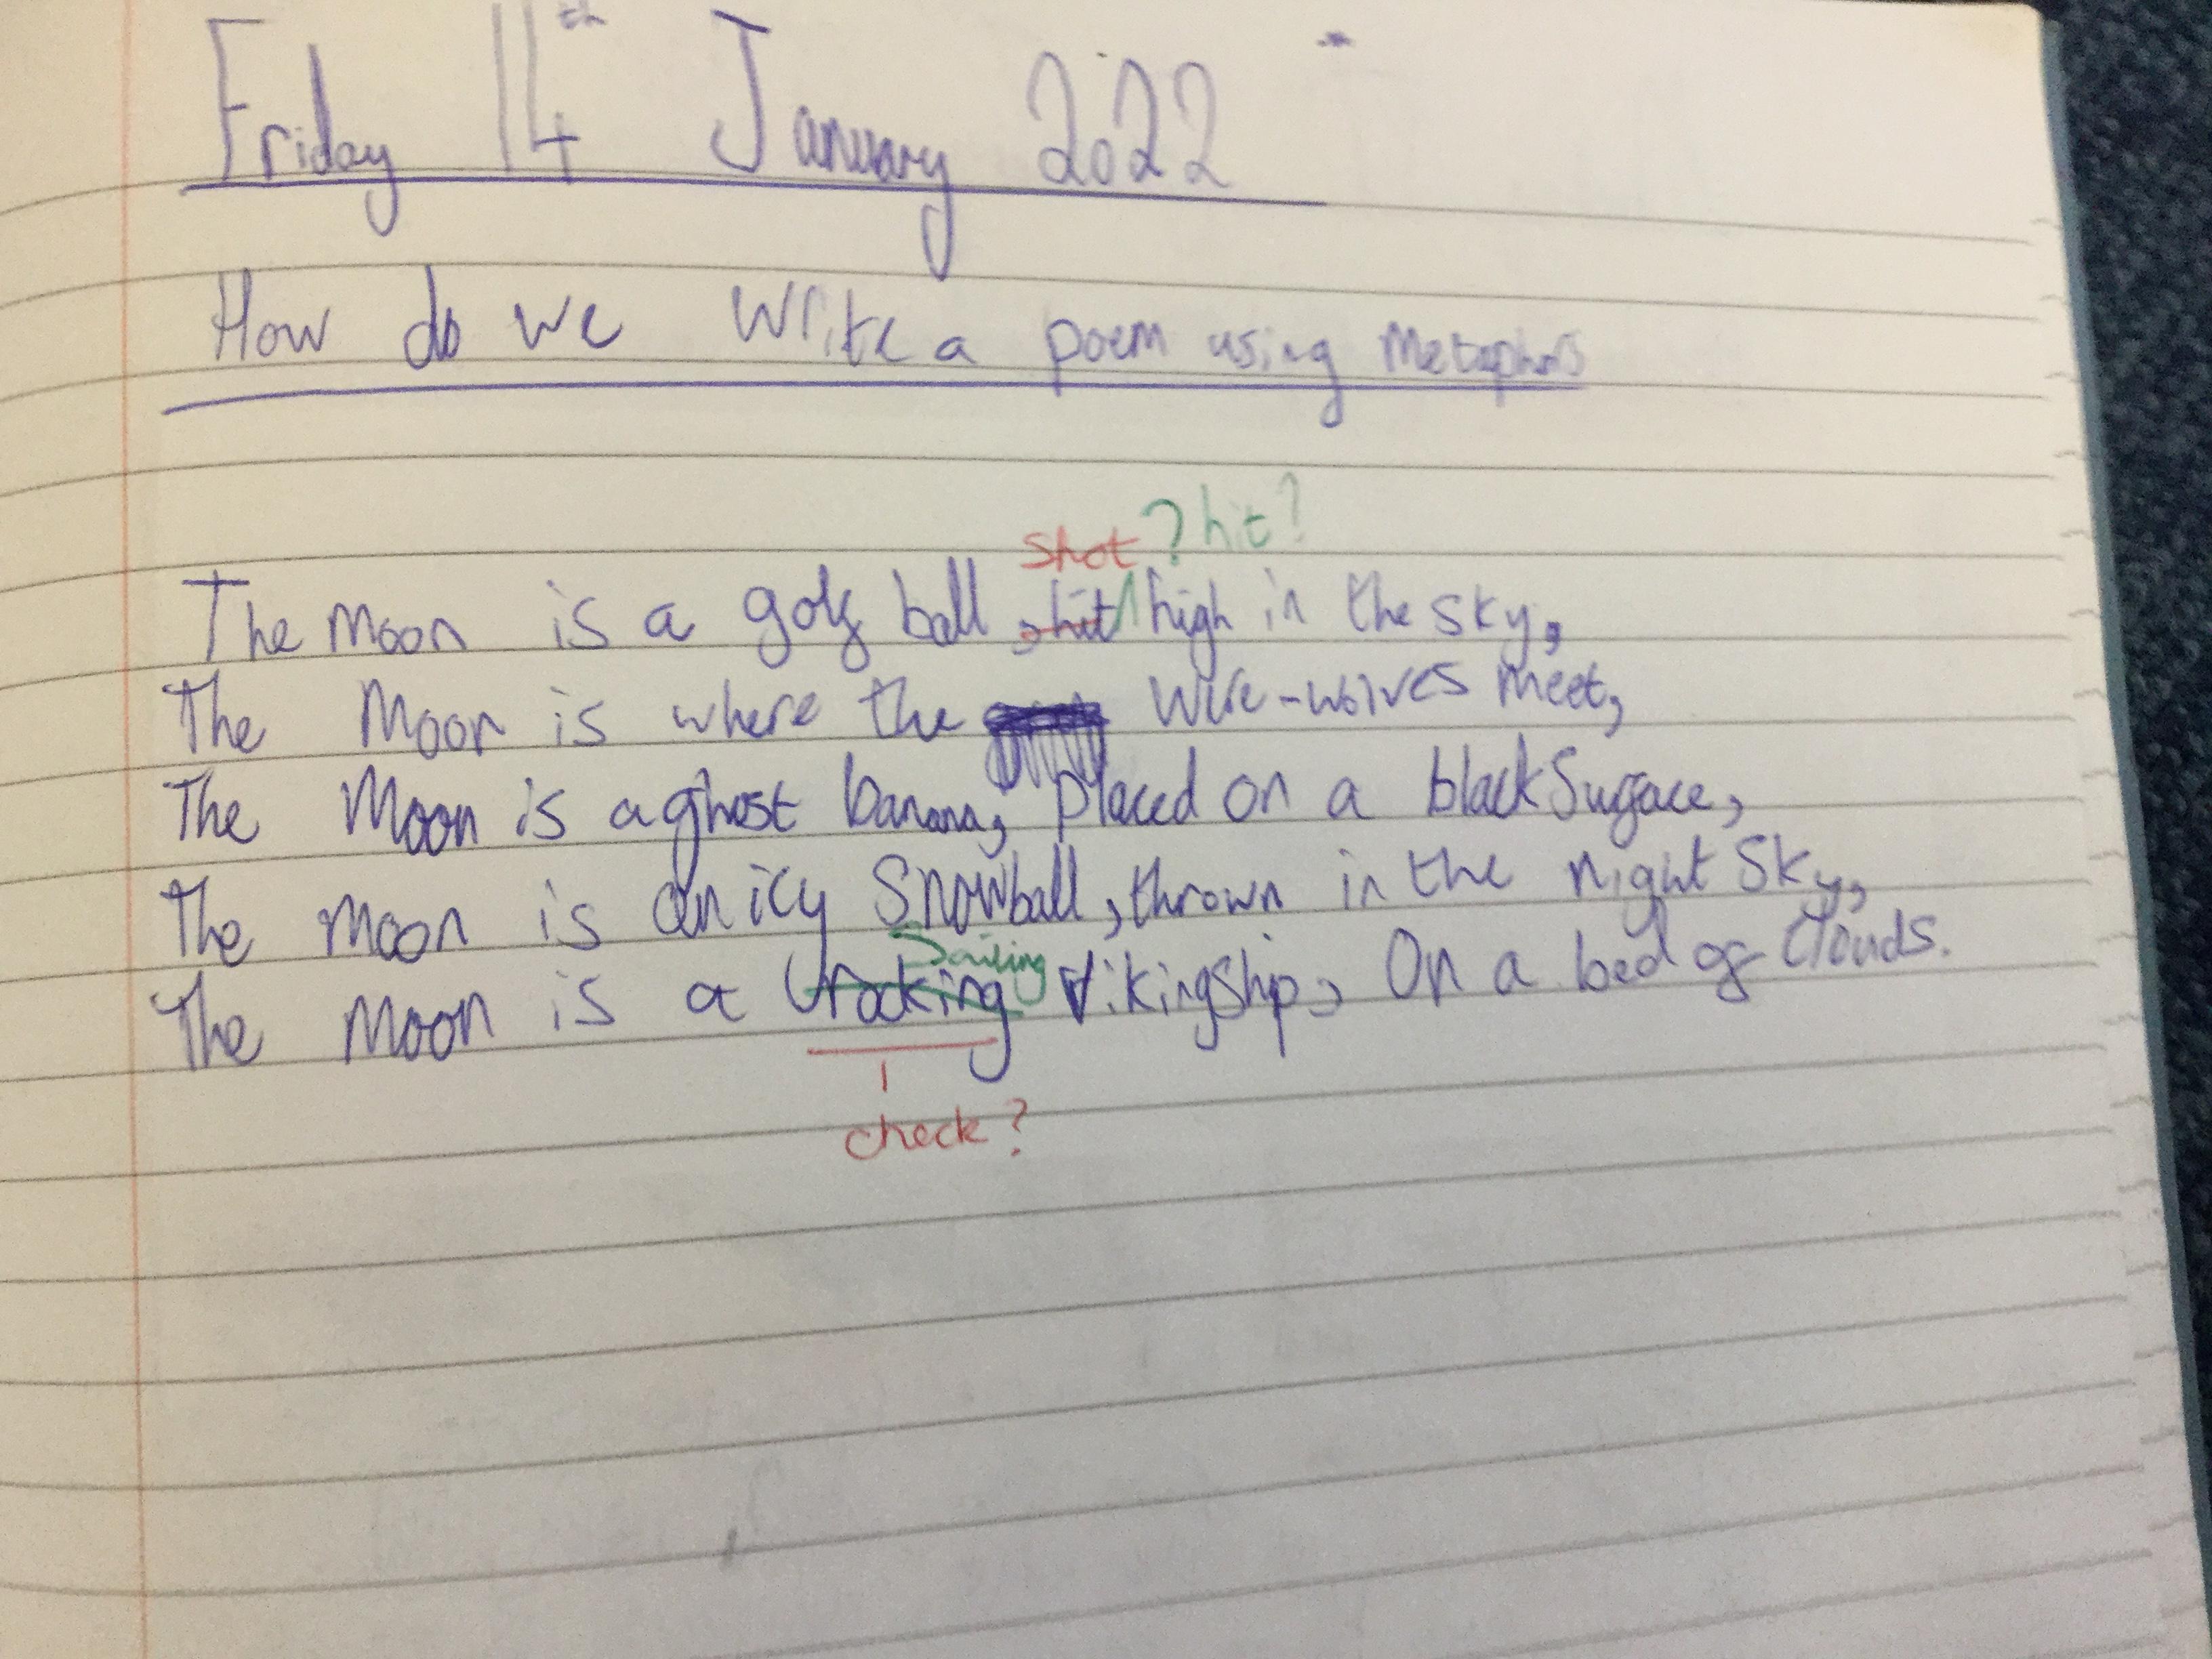 Friday 14th January 2022
How do we write a poem using Metaphors
shot ? hit?
The Moon is a golf ball, hit high in the sky,
The Moon is where the were-wolves meet,
The Moon is a ghost banana, placed on a black surface,
The Moon is an icy snowball, thrown in the night sky,
Sailing
The Moon is a vikingship, On a bed of clouds.
check?